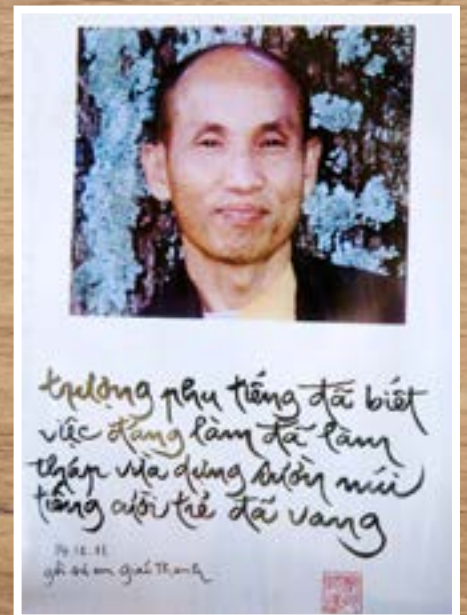 trượng phu tiếng đã biết
việc đáng làm đã làm
tháp vừa dựng sườn núi
tiếng cười trẻ đã vang
gởi sư em Giác Thanh